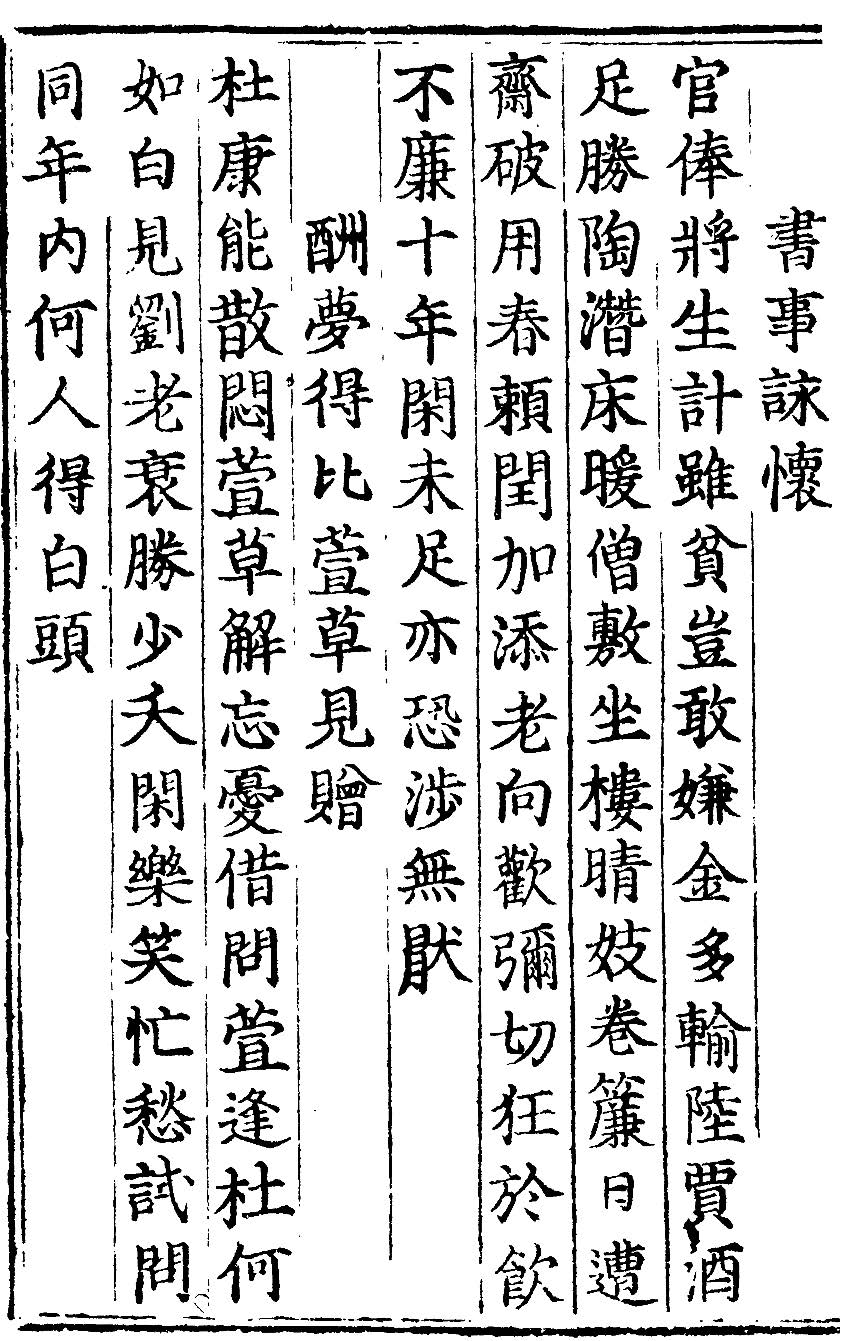 書事詠懷
官俸將生計雖貧豈敢嫌金多輸陸賈酒
足勝陶潛床暖僧敷坐樓晴妓卷簾日遭
齋破用春賴閏加添老向歡彌切狂於飲
不廉十年閑未足亦恐涉無猒
酬夢得比萱草見贈
杜康能散悶萱草解忘憂借問萱逢杜何
如白見劉老衰勝少夭閑樂笑忙愁試問
同年內何人得白頭